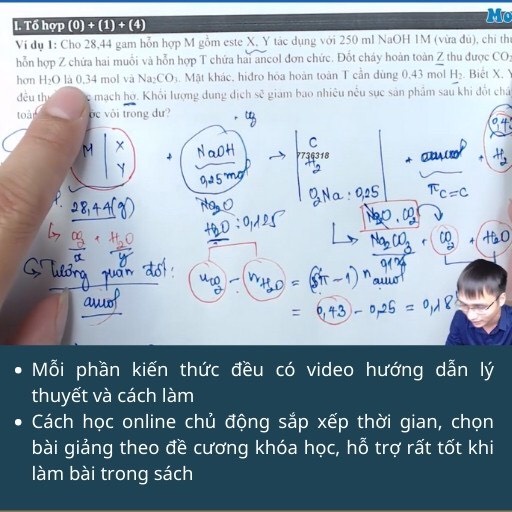 I. Tổ hợp (0) + (1) + (4)
Ví dụ 1: Cho 28,44 gam hỗn hợp M gồm este X, Y tác dụng với 250 ml NaOH 1M (vừa đủ), chỉ thu
hỗn hợp Z chứa hai muối và hỗn hợp T chứa hai ancol đơn chức. Đốt cháy hoàn toàn Z thu được CO2
hơn H2O là 0,34 mol và Na2CO3. Mặt khác, hiđro hóa hoàn toàn T cần dùng 0,43 mol H2. Biết X, Y
đều mạch hở. Khối lượng dung dịch sẽ giảm bao nhiêu nếu sục sản phẩm sau khi đốt
vôi trong dư?
M X Y + NaOH → C H2 + ancol + H2
7736318
0,25 mol
28,44(g)
Na2O
H2O : 0,125
ONa : 0,25
π C=C
Na2O . CO2
CO2 + H2O
x y
Na2CO3 + CO2 + H2O
Tương quan đốt: nCO2 - nH2O = (π - 1) n ancol
ancol
= 0,43 - 0,25 = 0,18
• Mỗi phần kiến thức đều có video hướng dẫn lý
thuyết và cách làm
• Cách học online chủ động sắp xếp thời gian, chọn
bài giảng theo đề cương khóa học, hỗ trợ rất tốt khi
làm bài trong sách